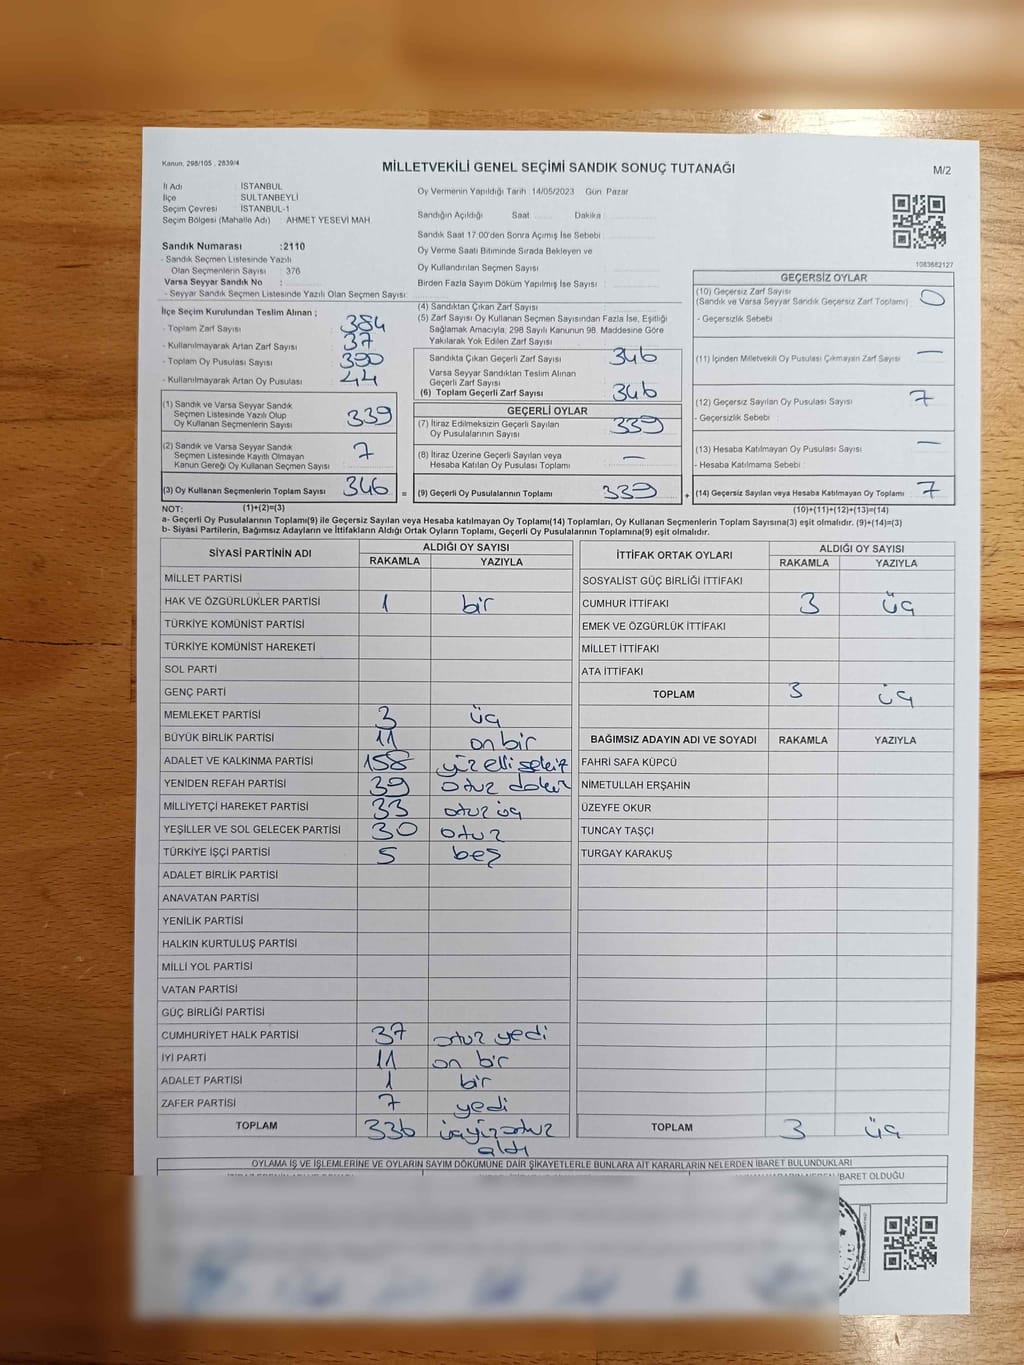 Kanun, 298/105 , 2839/4
MİLLETVEKİLİ GENEL SEÇİMİ SANDIK SONUÇ TUTANAĞI
M/2
İl Adı : İSTANBUL
İlçe SULTANBEYLİ
Seçim Çevresi : İSTANBUL-1
Seçim Bölgesi (Mahalle Adı) : AHMET YESEVİ MAH.
Oy Vermenin Yapıldığı Tarih : 14/05/2023 Gün Pazar
Sandığın Açıldığı Saat ....... Dakika ..........
Sandık Saat 17:00'den Sonra Açımış İse Sebebi : ..........
Oy Verme Saati Bitiminde Sırada Bekleyen ve
Oy Kullandırılan Seçmen Sayısı
Birden Fazla Sayım Döküm Yapılmış İse Sayısı :
1083662127
Sandık Numarası :2110
- Sandık Seçmen Listesinde Yazılı
Olan Seçmenlerin Sayısı : 376
Varsa Seyyar Sandık No :
- Seyyar Sandık Seçmen Listesinde Yazılı Olan Seçmen Sayısı:
İlçe Seçim Kurulundan Teslim Alınan ;
- Toplam Zarf Sayısı 384
- Kullanılmayarak Artan Zarf Sayısı 37
- Toplam Oy Pusulası Sayısı 390
- Kullanılmayarak Artan Oy Pusulası 44
(1) Sandık ve Varsa Seyyar Sandık
Seçmen Listesinde Yazılı Olup
Oy Kullanan Seçmenlerin Sayısı 339
(2) Sandık ve Varsa Seyyar Sandık
Seçmen Listesinde Kayıtlı Olmayan
Kanun Gereği Oy Kullanan Seçmen Sayısı 7
(3) Oy Kullanan Seçmenlerin Toplam Sayısı 346 =
(4) Sandıktan Çıkan Zarf Sayısı
(5) Zarf Sayısı Oy Kullanan Seçmen Sayısından Fazla İse, Eşitliği
Sağlamak Amacıyla, 298 Sayılı Kanunun 98. Maddesine Göre
Yakılarak Yok Edilen Zarf Sayısı
Sandıkta Çıkan Geçerli Zarf Sayısı 346
Varsa Seyyar Sandıktan Teslim Alınan
Geçerli Zarf Sayısı
(6) Toplam Geçerli Zarf Sayısı 346
GEÇERLİ OYLAR
(7) İtiraz Edilmeksizin Geçerli Sayılan
Oy Pusulalarının Sayısı 339
(8) İtiraz Üzerine Geçerli Sayılan veya
Hesaba Katılan Oy Pusulası Toplamı —
(9) Geçerli Oy Pusulalarının Toplamı 339 +
GEÇERSİZ OYLAR
(10) Geçersiz Zarf Sayısı 0
(Sandık ve Varsa Seyyar Sandık Geçersiz Zarf Toplamı)
- Geçersizlik Sebebi :
(11) İçinden Milletvekili Oy Pusulası Çıkmayan Zarf Sayısı —
(12) Geçersiz Sayılan Oy Pusulası Sayısı 7
- Geçersizlik Sebebi :
(13) Hesaba Katılmayan Oy Pusulası Sayısı —
- Hesaba Katılmama Sebebi :
(14) Geçersiz Sayılan veya Hesaba Katılmayan Oy Toplamı 7
NOT: (1)+(2)=(3) (10)+(11)+(12)+(13)=(14)
a- Geçerli Oy Pusulalarının Toplamı(9) ile Geçersiz Sayılan veya Hesaba katılmayan Oy Toplamı(14) Toplamları, Oy Kullanan Seçmenlerin Toplam Sayısına(3) eşit olmalıdır. (9)+(14)=(3)
b- Siyasi Partilerin, Bağımsız Adayların ve İttifakların Aldığı Ortak Oyların Toplamı, Geçerli Oy Pusulalarının Toplamına(9) eşit olmalıdır.
SİYASİ PARTİNİN ADI ALDIĞI OY SAYISI
RAKAMLA YAZIYLA
MİLLET PARTİSİ
HAK VE ÖZGÜRLÜKLER PARTİSİ 1 bir
TÜRKİYE KOMÜNİST PARTİSİ
TÜRKİYE KOMÜNİST HAREKETİ
SOL PARTİ
GENÇ PARTİ
MEMLEKET PARTİSİ 3 üç
BÜYÜK BİRLİK PARTİSİ 11 on bir
ADALET VE KALKINMA PARTİSİ 158 yüz elli sekiz
YENİDEN REFAH PARTİSİ 39 otuz dokuz
MİLLİYETÇİ HAREKET PARTİSİ 33 otuz üç
YEŞİLLER VE SOL GELECEK PARTİSİ 30 otuz
TÜRKİYE İŞÇİ PARTİSİ 5 beş
ADALET BİRLİK PARTİSİ
ANAVATAN PARTİSİ
YENİLİK PARTİSİ
HALKIN KURTULUŞ PARTİSİ
MİLLİ YOL PARTİSİ
VATAN PARTİSİ
GÜÇ BİRLİĞİ PARTİSİ
CUMHURİYET HALK PARTİSİ 37 otuz yedi
İYİ PARTİ 11 on bir
ADALET PARTİSİ 1 bir
ZAFER PARTİSİ 7 yedi
TOPLAM 336 üçyüzotuz
altı
İTTİFAK ORTAK OYLARI ALDIĞI OY SAYISI
RAKAMLA YAZIYLA
SOSYALİST GÜÇ BİRLİĞİ İTTİFAKI
CUMHUR İTTİFAKI 3 üç
EMEK VE ÖZGÜRLÜK İTTİFAKI
MİLLET İTTİFAKI
ATA İTTİFAKI
TOPLAM 3 üç
BAĞIMSIZ ADAYIN ADI VE SOYADI RAKAMLA YAZIYLA
FAHRİ SAFA KÜPCÜ
NİMETULLAH ERŞAHİN
ÜZEYFE OKUR
TUNCAY TAŞÇI
TURGAY KARAKUŞ
TOPLAM 3 üç
OYLAMA İŞ VE İŞLEMLERİNE VE OYLARIN SAYIM DÖKÜMÜNE DAİR ŞİKAYETLERLE BUNLARA AİT KARARLARIN NELERDEN İBARET BULUNDUKLARI
İBARET OLDUĞU